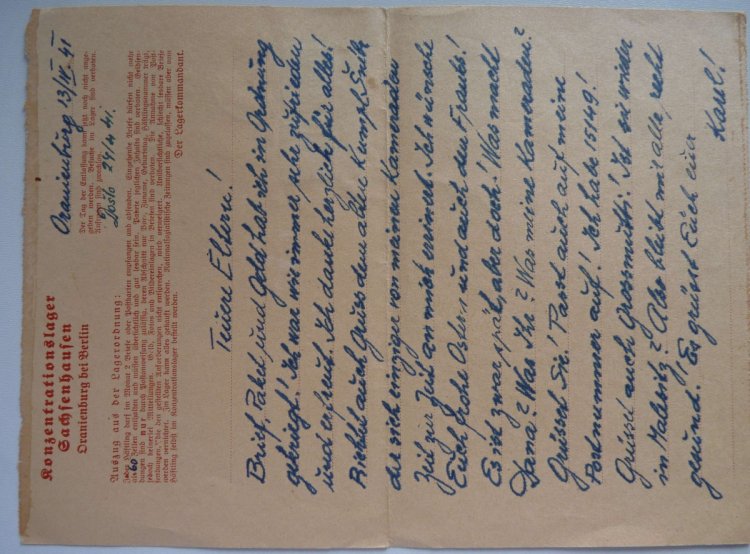 Konzentrationslager
Sachsenhausen
Oranienburg bei Berlin
Oranienburg 13/IV. 41
Der Tag der Entlassung kann jetzt noch nicht ange-
geben werden. Besuche im Lager sind verboten.
Anfragen sind zwecklos.
Došlo 41.
Auszug aus der Lagerordnung:
Jeder Häftling darf im Monat 2 Briefe oder Postkarten empfangen und absenden. Eingehende Briefe dürfen nicht mehr
als 60 Zeilen enthalten und müssen übersichtlich und gut lesbar sein. Pakete jeglichen Inhalts sind verboten. Geldsen-
dungen sind nur durch Postanweisung zulässig, deren Abschnitt nur Vor-, Zuname, Geburtstag, Häftlingsnummer trägt,
jedoch keinerlei Mitteilungen. Geld, Fotos und Bildereinlagen in Briefen sind verboten. Die Annahme von Post-
sendungen, die den gestellten Anforderungen nicht entsprechen, wird verweigert. Unübersichtliche, schlecht lesbare Briefe
werden vernichtet. Im Lager kann alles gekauft werden. Nationalsozialistische Zeitungen sind zugelassen, müssen aber vom
Häftling selbst im Konzentrationslager bestellt werden.
Der Lagerkommandant.
Teuren Eltern!
Brief, Paket, und Geld hab ich in Ordnung
gekriegt! Ich war wie immer sehr zufrieden
und froh auch. Ich danke herzlich für alles!
Richtet auch Gruss dem alten
die sich einziger von meinen Kameraden
Zeit zur Zeit an mich erinnt. Ich wünsche
Euch frohe Ostern und auch den
Es ist zwar spät, aber doch! Was macht
Dana? Was Ihr? Was mein Kameraden?
Grüsset Sie! Passt auch auf meine
Personnr. auf! Ich habe 15149!
Grüsset auch Grossmutti! Ist sie wieder
in Also bleibt mir alle recht
gesund! Es grüsst Euch euer
Karel!